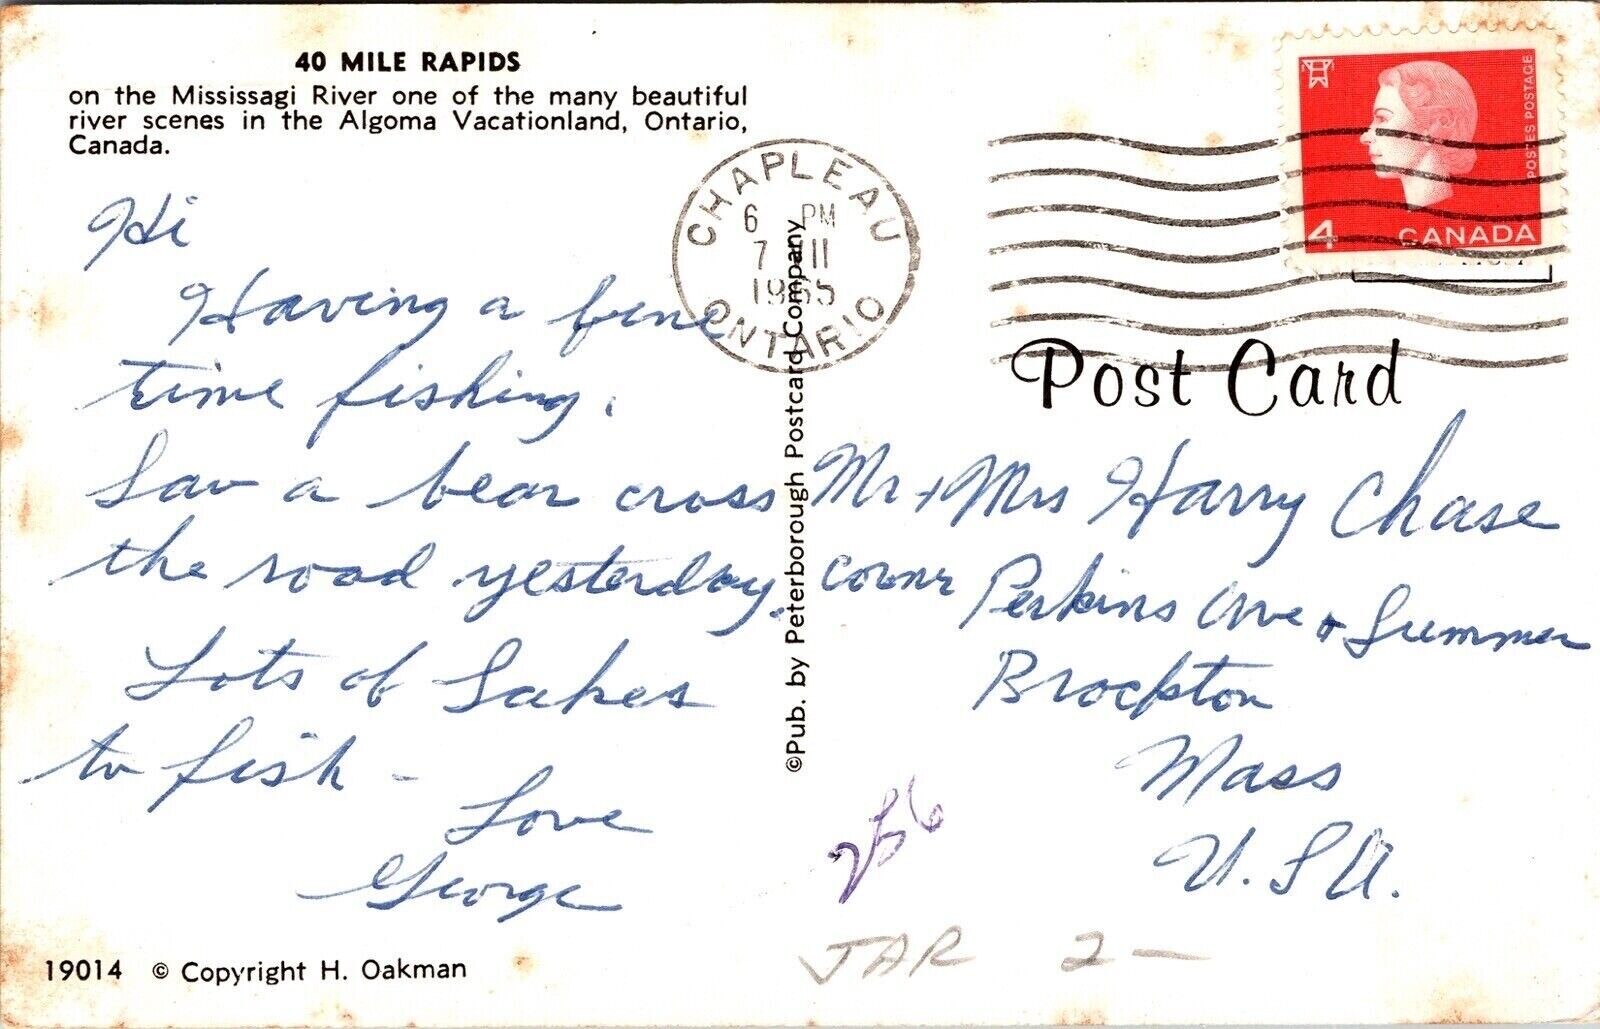 40 MILE RAPIDS
on the Mississagi River one of the many beautiful
river scenes in the Algoma Vacationland, Ontario,
Canada.
Hi
Having a fine
time fishing.
Saw a bear cross
the road yesterday.
Lots of Lakes
to fish -
Love
George
19014 © Copyright H. Oakman
CHAPLEAU
6 PM
7 11
1965
ONTARIO
© Pub. by Peterborough Postcard Company
POSTES POSTAGE
4 CANADA
Post Card
Mr + Mrs Harry Chase
corner Perkins Ave + Summer
Brockton
Mass
U.S.A.
256
JAR 2-